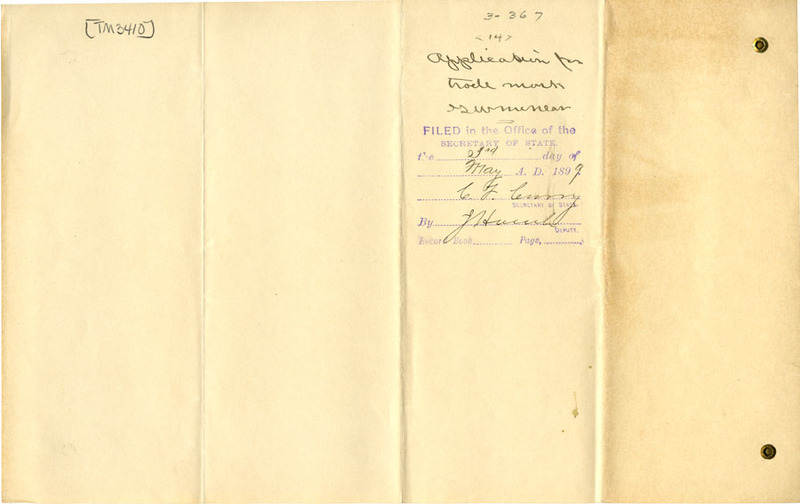 [TM3410]
3-367
<14>
Application for
trade mark
FILED in the Office of the
SECRETARY OF STATE.
the 3rd day of
May A. D. 1899
C. F. Curry
SECRETARY OF STATE.
By
DEPUTY.
Record Book Page,